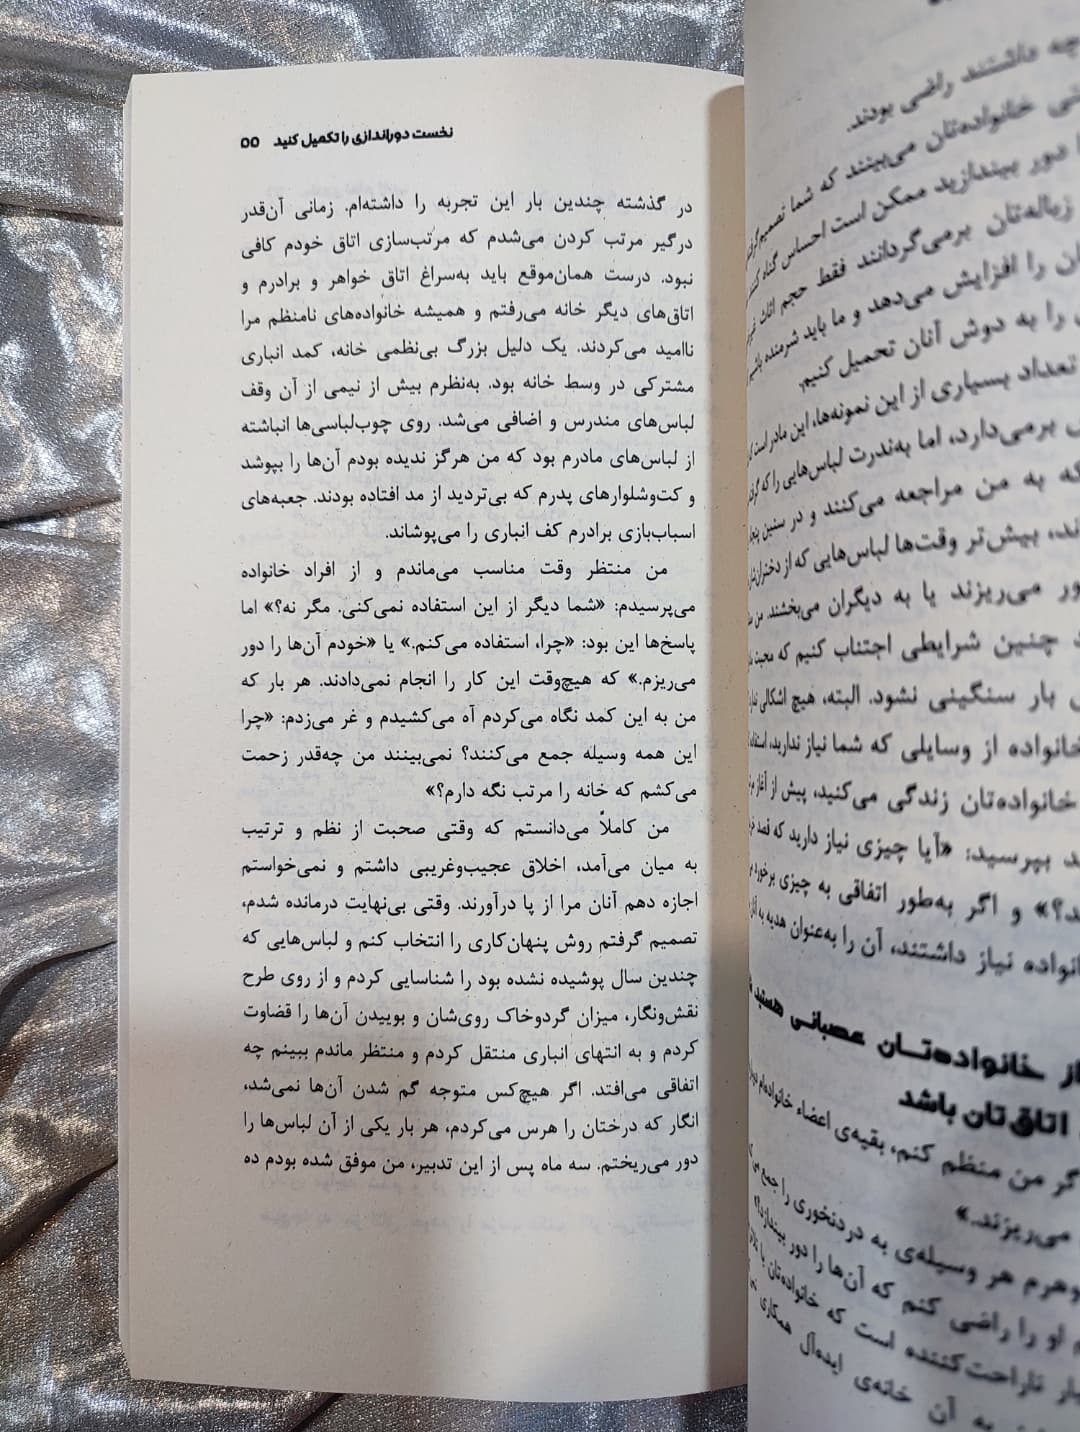 نخست دوراندازی را تکمیل کنید ۵۵
در گذشته چندین بار این تجربه را داشته‌ام. زمانی آن‌قدر
درگیر مرتب کردن می‌شدم که مرتب‌سازی اتاق خودم کافی
نبود. درست همان‌موقع باید به‌سراغ اتاق خواهر و برادرم و
اتاق‌های دیگر خانه می‌رفتم و همیشه خانواده‌های نامنظم مرا
ناامید می‌کردند. یک دلیل بزرگ بی‌نظمی خانه، کمد انباری
مشترکی در وسط خانه بود. به‌نظرم بیش از نیمی از آن وقف
لباس‌های مندرس و اضافی می‌شد. روی چوب‌لباسی‌ها انباشته
از لباس‌های مادرم بود که من هرگز ندیده بودم آن‌ها را بپوشد
و کت‌وشلوارهای پدرم که بی‌تردید از مد افتاده بودند. جعبه‌های
اسباب‌بازی برادرم کف انباری را می‌پوشاند.
من منتظر وقت مناسب می‌ماندم و از افراد خانواده
می‌پرسیدم: «شما دیگر از این استفاده نمی‌کنی. مگر نه؟» اما
پاسخ‌ها این بود: «چرا، استفاده می‌کنم.» یا «خودم آن‌ها را دور
می‌ریزم.» که هیچ‌وقت این کار را انجام نمی‌دادند. هر بار که
من به این کمد نگاه می‌کردم آه می‌کشیدم و غر می‌زدم: «چرا
این همه وسیله جمع می‌کنند؟ نمی‌بینند من چه‌قدر زحمت
می‌کشم که خانه را مرتب نگه دارم؟»
من کاملاً می‌دانستم که وقتی صحبت از نظم و ترتیب
به میان می‌آمد، اخلاق عجیب‌وغریبی داشتم و نمی‌خواستم
اجازه دهم آنان مرا از پا درآورند. وقتی بی‌نهایت درمانده شدم،
تصمیم گرفتم روش پنهان‌کاری را انتخاب کنم و لباس‌هایی که
چندین سال پوشیده نشده بود را شناسایی کردم و از روی طرح
نقش‌ونگار، میزان گردوخاک روی‌شان و بوییدن آن‌ها را قضاوت
کردم و به انتهای انباری منتقل کردم و منتظر ماندم ببینم چه
اتفاقی می‌افتد. اگر هیچ‌کس متوجه گم شدن آن‌ها نمی‌شد،
انگار که درختان را هرس می‌کردم، هر بار یکی از آن لباس‌ها را
دور می‌ریختم. سه ماه پس از این تدبیر، من موفق شده بودم ده
چه داشتند راضی بودند.
خانواده‌تان می‌بینند که شما تصمیم
دور بیندازید ممکن است احساس گناه کنند
زباله‌تان برمی‌گردانند فقط حجم اثاث
را افزایش می‌دهد و ما باید شرمنده باشیم
را به دوش آنان تحمیل کنیم.
تعداد بسیاری از این نمونه‌ها، این مادر است
برمی‌دارد، اما به‌ندرت لباس‌هایی را که
که به من مراجعه می‌کنند و در سنین
بیش‌تر وقت‌ها لباس‌هایی که از
می‌ریزند یا به دیگران می‌بخشند. من
چنین شرایطی اجتناب کنیم که محبت
بار سنگینی نشود. البته، هیچ اشکالی
خانواده از وسایلی که شما نیاز ندارید، استفاده
خانواده‌تان زندگی می‌کنید، پیش از آغاز
بپرسید: «آیا چیزی نیاز دارید که قصد
و اگر به‌طور اتفاقی به چیزی
نیاز داشتند، آن را به‌عنوان هدیه به
از خانواده‌تان عصبانی هستید
اتاق‌تان باشد
من منظم کنم، بقیه‌ی اعضاء خانواده‌ام
می‌ریزند.»
هر وسیله‌ی به دردنخوری را جمع
او را راضی کنم که آن‌ها را دور بیندازد؟»
ناراحت‌کننده است که خانواده‌تان با
به آن خانه‌ی ایده‌آل همکاری